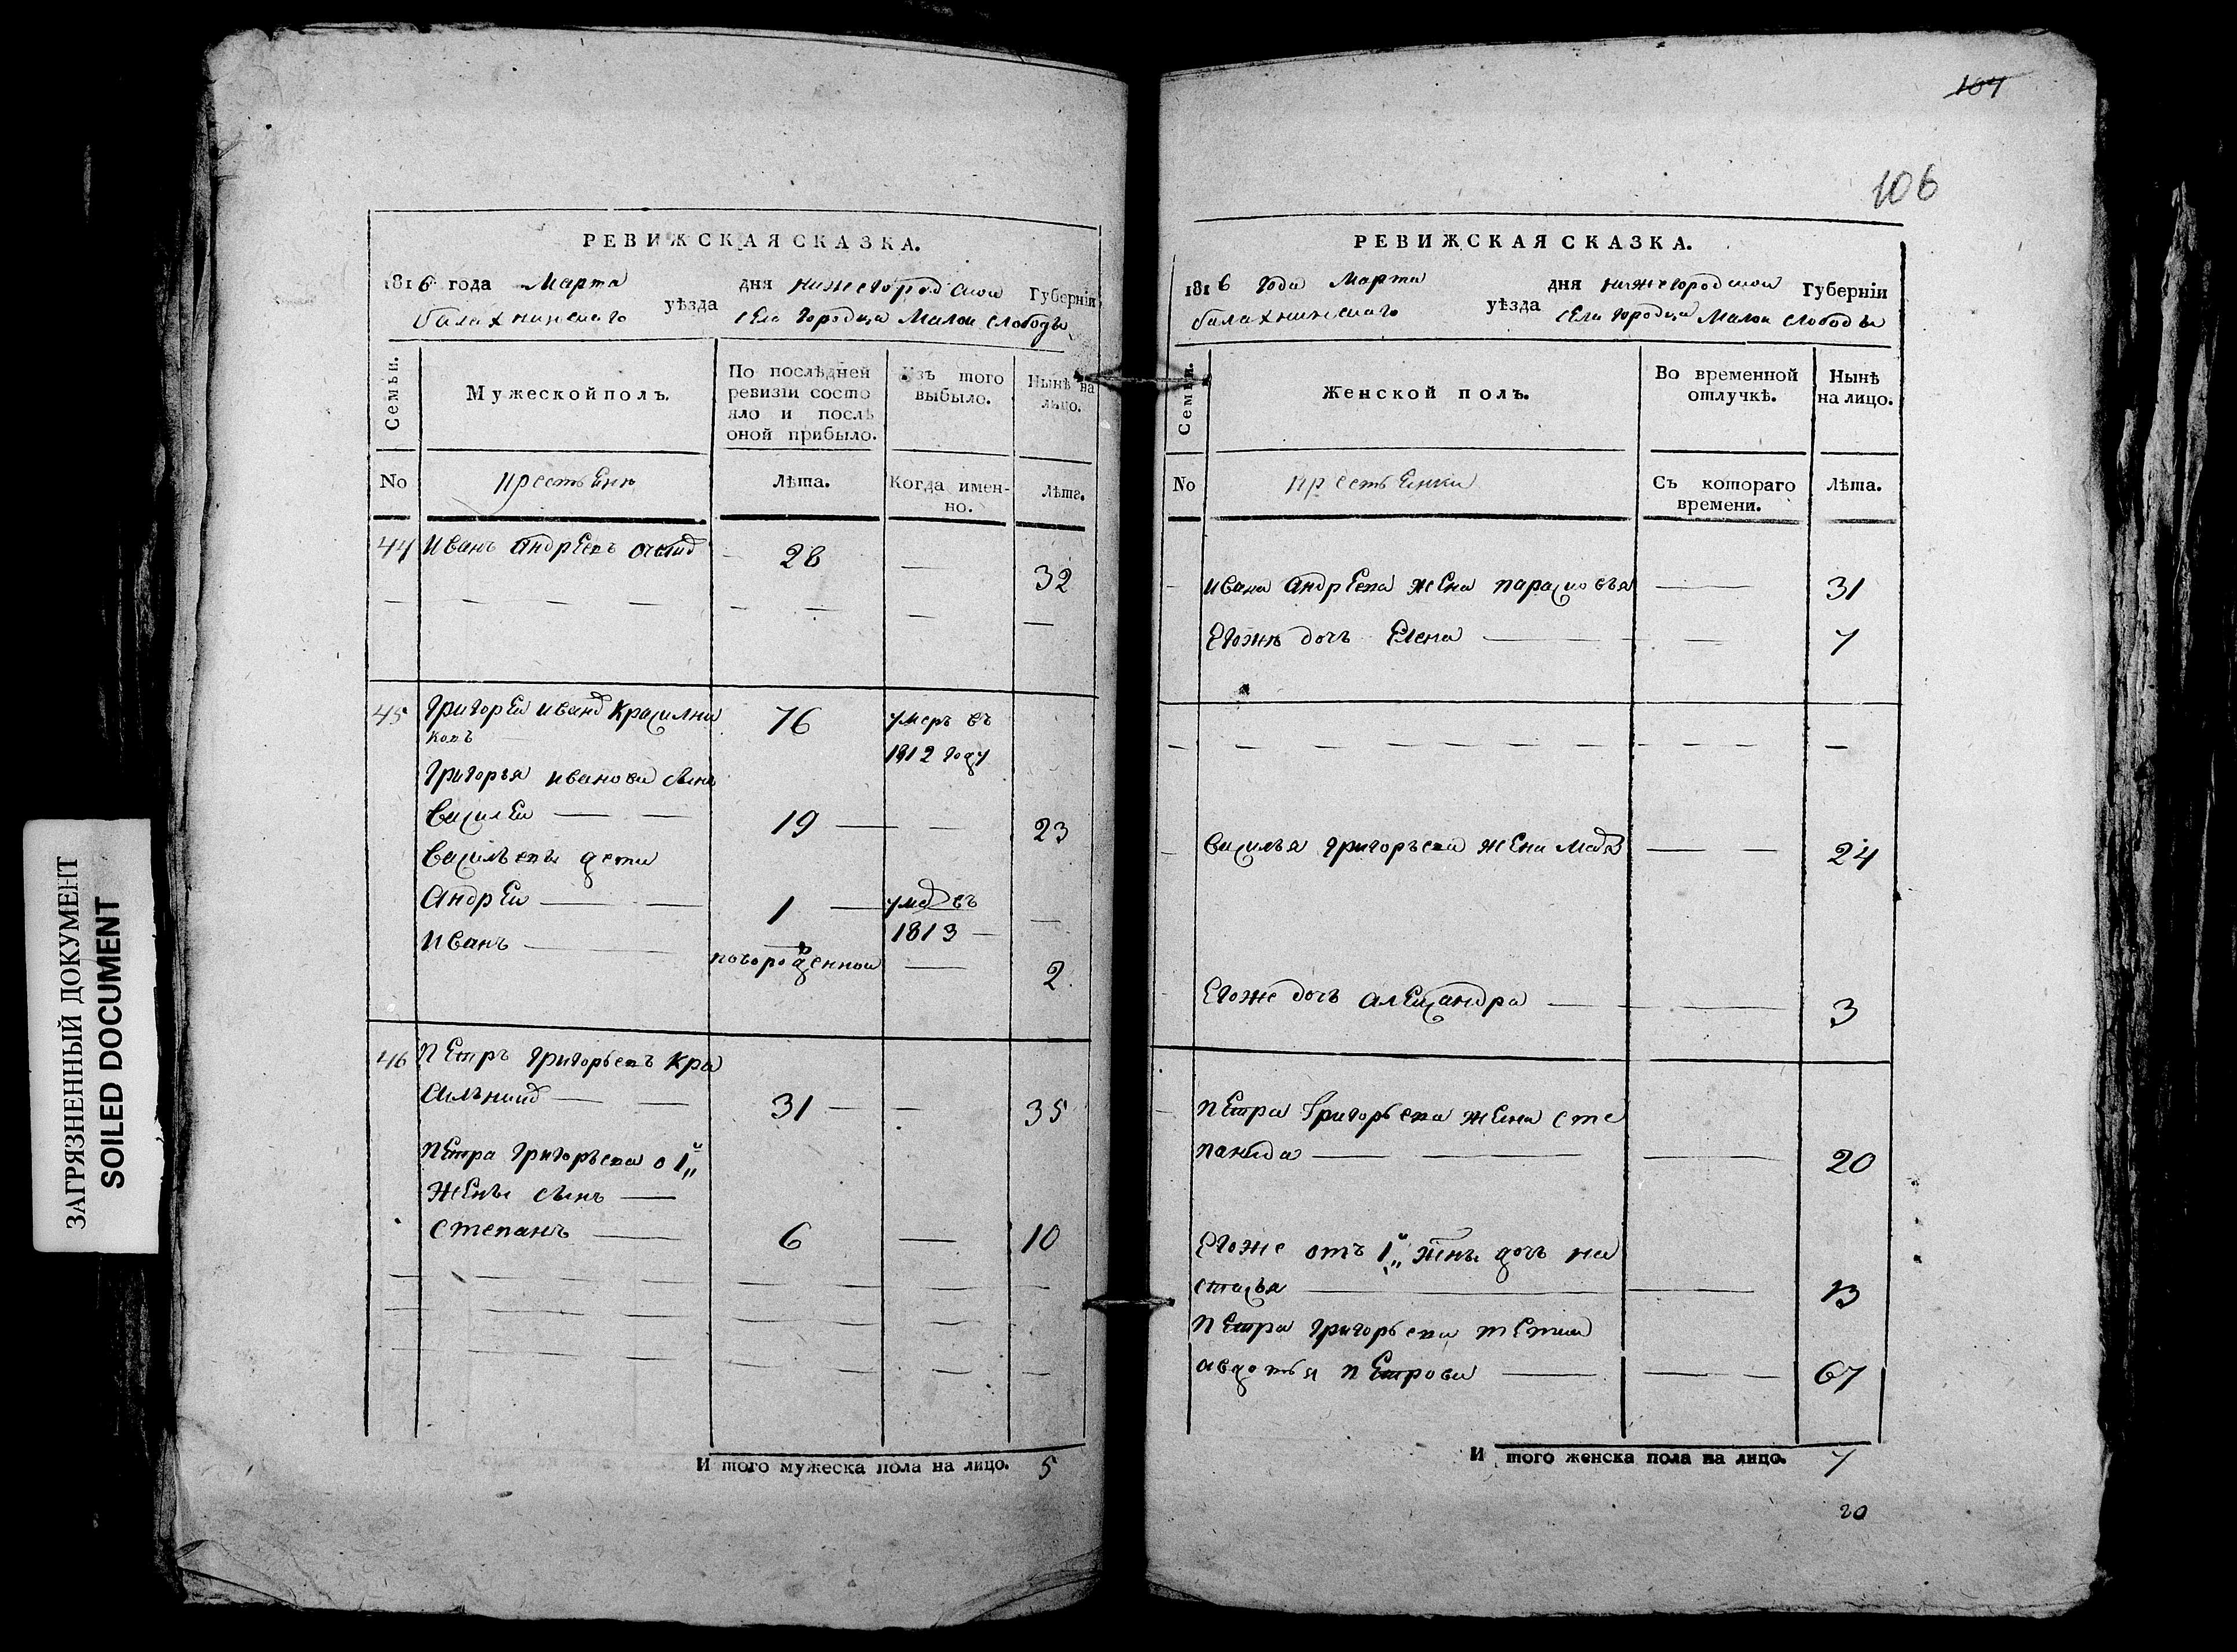 ЗАГРЯЗНЕННЫЙ ДОКУМЕНТ
SOILED DOCUMENT
РЕВИЖСКАЯ СКАЗКА.
1816 года Марта дня нижегородской Губерніи
балахнинскаго уѣзда села городца Малой слободы
Семьи.
Мужеской полъ.
По послѣдней ревизіи состояло и послѣ оной прибыло.
Изъ того выбыло.
Ныңѣ на лицо.
No
крестьяне
Лѣта.
Когда именно.
Лѣта.
44 Иванъ андреевъ 28 32
45 Григореи иванов Красилни 76 умеръ въ
ковъ 1812 году
Григорья иванова сынъ
Василеи 19 23
Васильевы дети
Андреи 1 умер въ
1813
Иванъ новорожденной 2
46 Петръ григорьевъ кра
сильник 31 35
петра григорьева о 1й
жены сынъ
степанъ 6 10
И того мужеска пола на лицо. 5
107
106
РЕВИЖСКАЯ СКАЗКА.
1816 года Марта дня нижегородской Губерніи
балахнинскаго уѣзда села городца Малой слободы
Семьи.
Женской полъ.
Во временной отлучкѣ.
Нынѣ на лицо.
No
крестьянки
Съ котораго времени.
Лѣта.
ивана андреева жена парасковья 31
Егоже дочь Елена 7
Василья григорьева жена 24
Егоже дочь александра 3
петра Григорьева жена сте
панида 20
Егоже отъ 1й жены дочь на
стасья 13
петра григорьева тетка
авдотья петрова 67
И того женска пола на лицо. 7
20